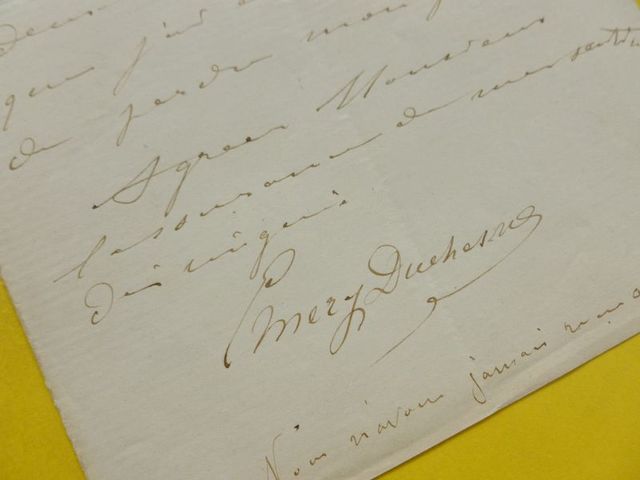 que j'ai
de perdre mon
Agreez Monsieur
l'assurance de mes sentim
distingués.
Emery Duchesne
Nous n'avons jamais reçu